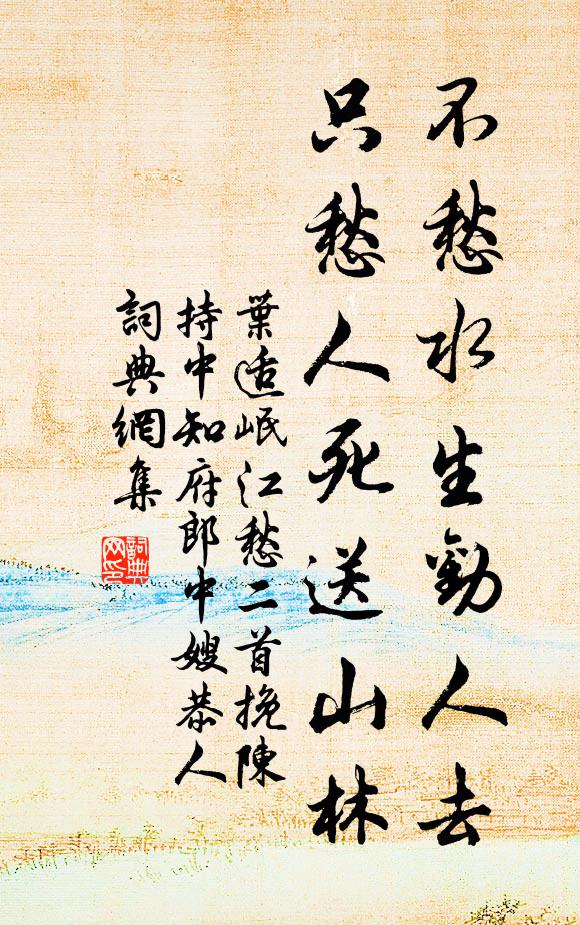 不愁水生勸人去
只愁人死送山林
葉适岷江愁二首挽陳
持中知府郎中嫂恭人
詞典網集
詞典
网印